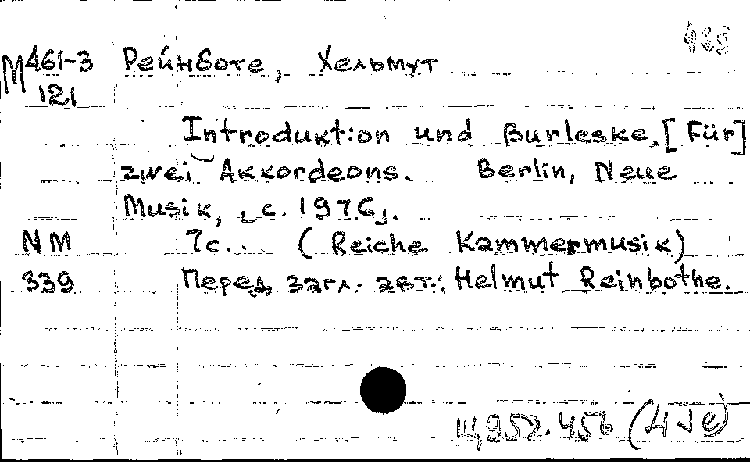 М461-3 Рейнботе, Хельмут
121
Introduktion und Burleske. [Für]
zwei Akkordeons. Berlin, Neue
Musik, [c. 1976].
NM 7с. (Reihe Kammermusik)
339 Перед загл. авт.: Helmut Reinbothe.